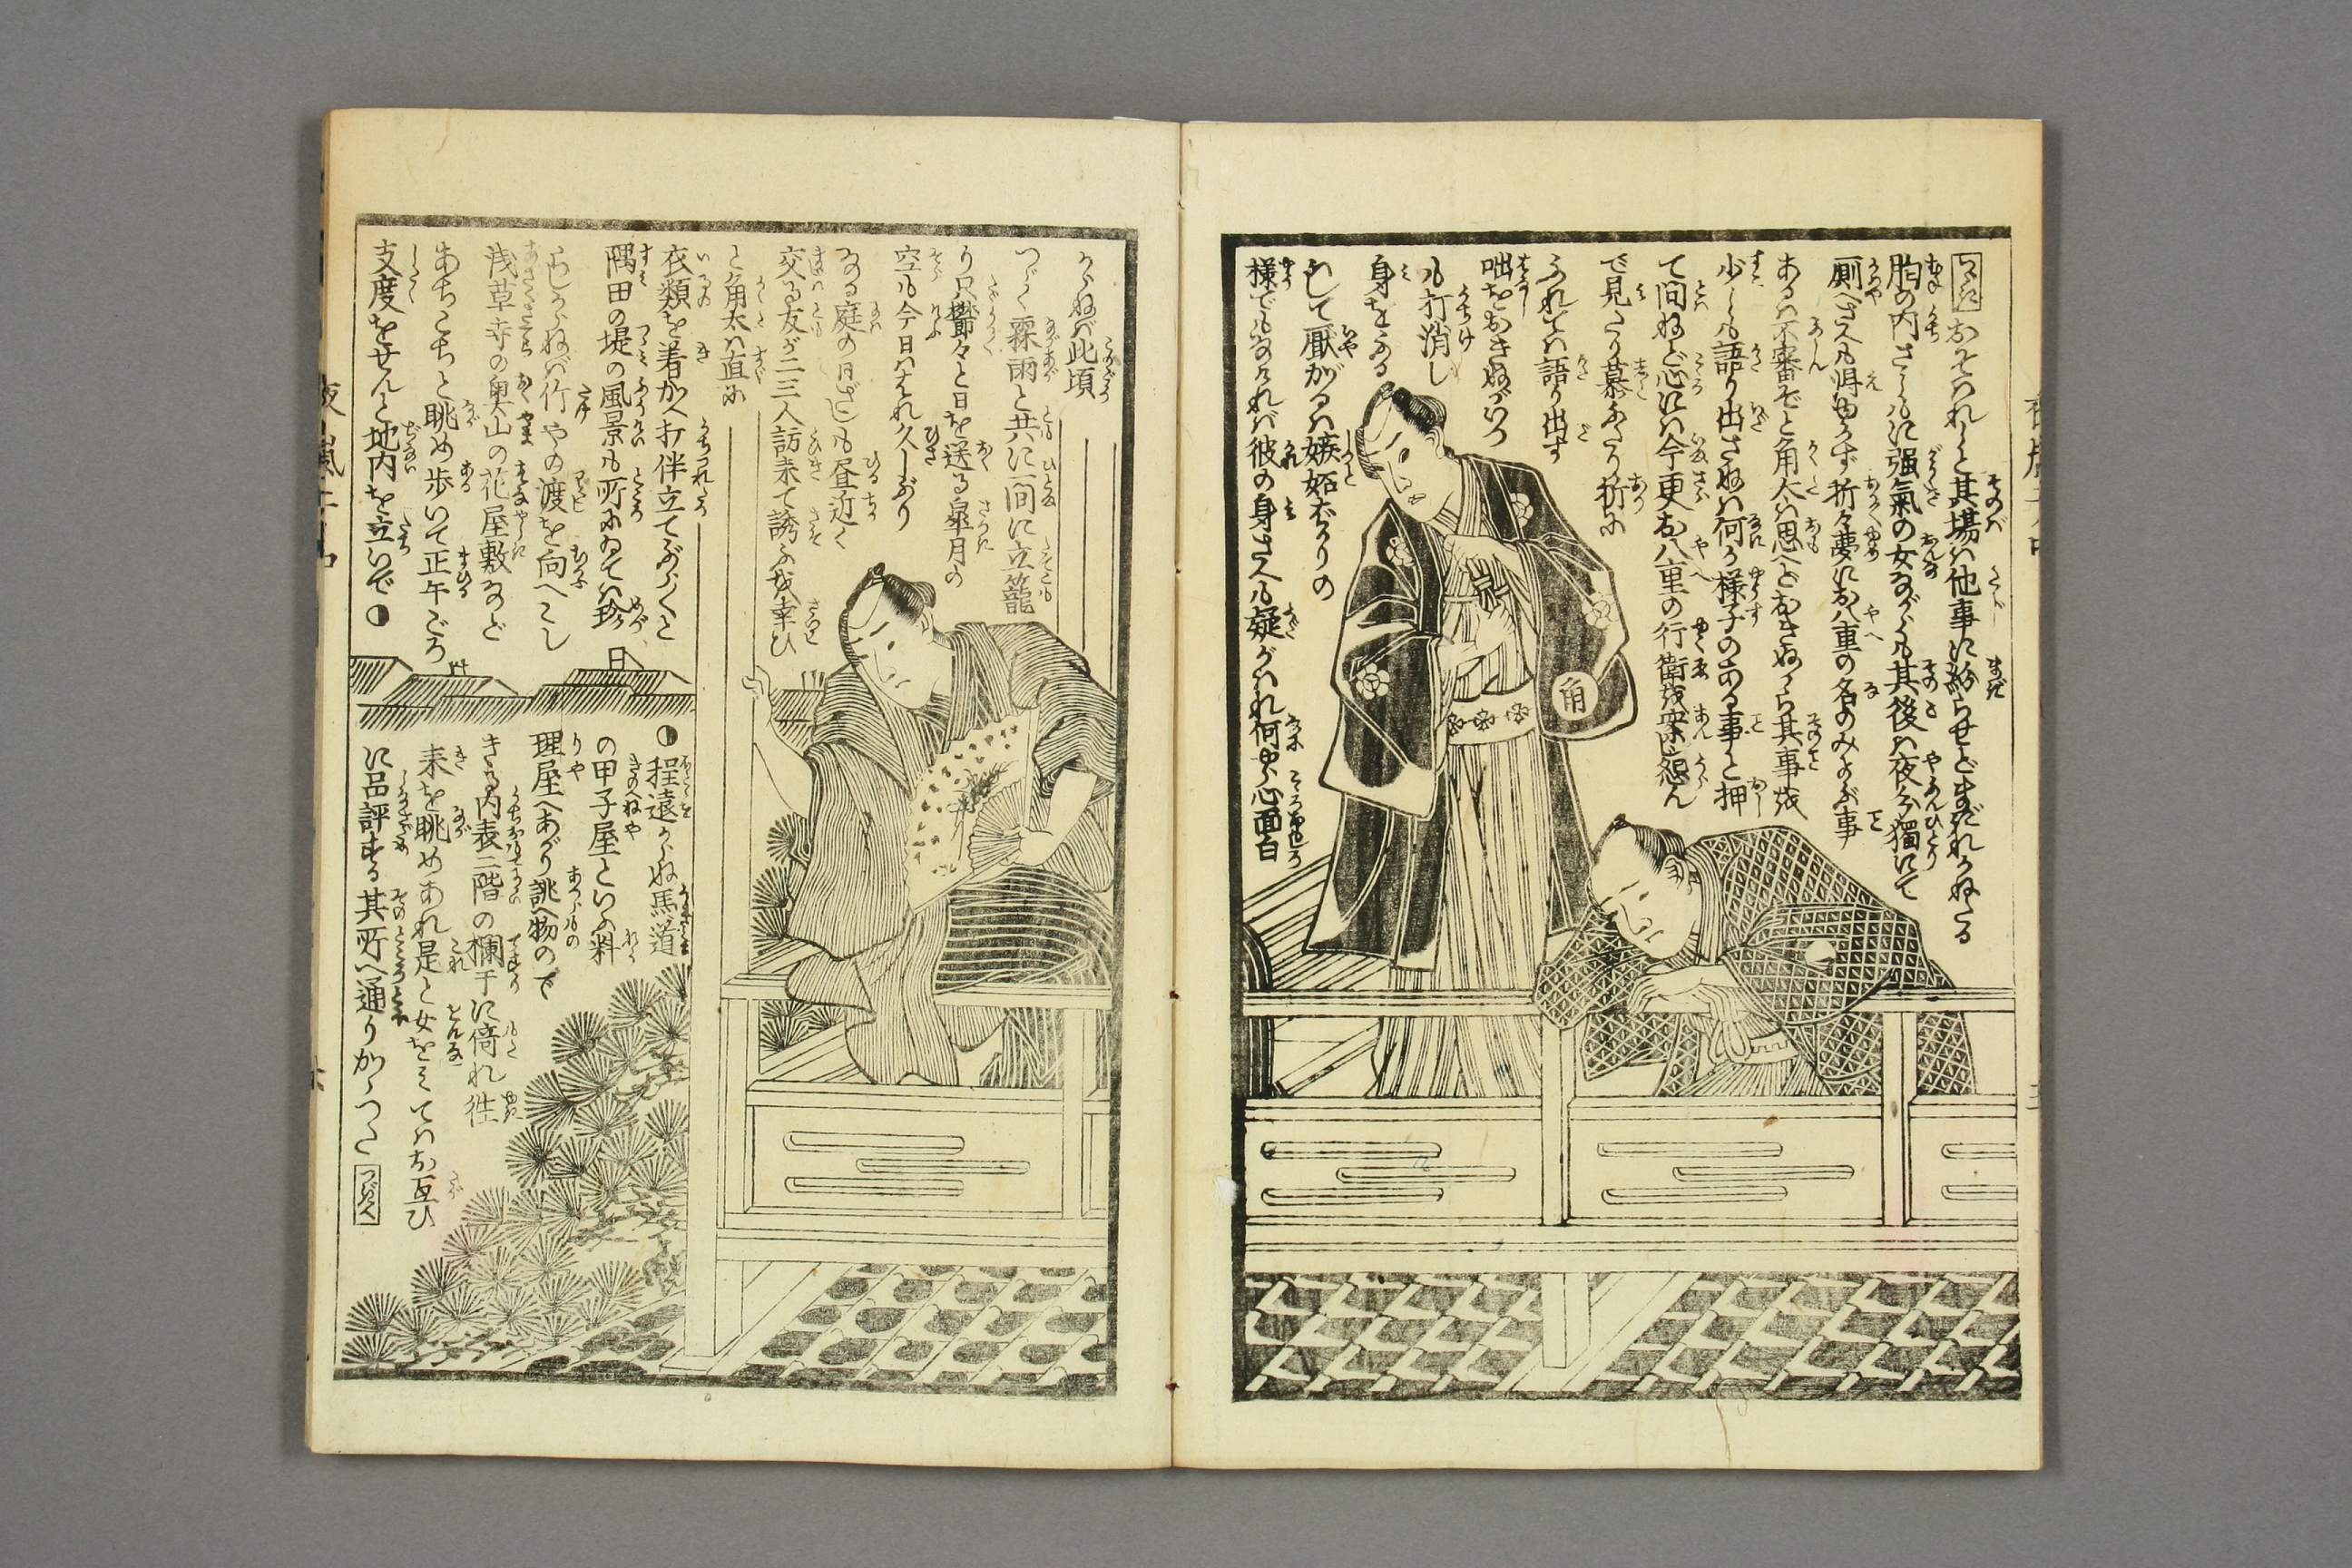 つゞき おそはれしと其場は他事に紛らせどまぎれかねたる
胸の内さしもに強氣の女ながらも其後は夜分獨にて
厠へさへも得ゆかず折々夢にお八重の名のみよぶ事
あるは不審ぞと角太は思へどおきぬから其事を
少しも語り出さねは何か様子のある事と押
て問ねど心には今更お八重の行衛を案じ怨ん
で見たり慕ふたり折に
ふれては語り出す
咄をおきぬがいつ
も打消し
身をふる
はして厭がるは嫉妬ばかりの
様でもなけれは彼の身さへも疑がはれ何ゆゑ心面白
からねば此頃
つゞく霖雨と共に一間に立籠
り只欝々と日を送る皐月の
空も今日ははれ久しぶり
なる庭の日ざしも昼近く
交る友が二三人訪来て誘ふを幸ひ
と角太は直に
衣類を着かへ打伴立てぶら〳〵と
隅田の堤の風景も所にゐては珍
らしからねば竹やの渡を向へこし
浅草寺の奥山の花屋敷など
あちこちと眺め歩いて正午ごろ
支度をせんと地内を立いで◐
◐程遠からぬ馬道
の甲子屋といふ料
理屋へあがり誂へ物ので
きる内表二階の欄干に倚れ徃
来を眺めあれ是と女をみてはお互ひ
に品評する其所へ通りかゝつた つぎへ
角